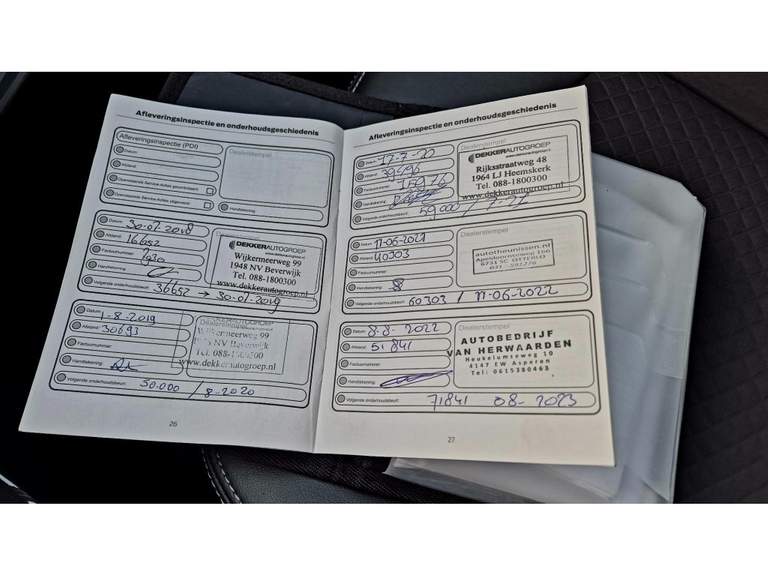 Afleveringsinspectie en onderhoudsgeschiedenis
Afleveringsinspectie (PDI)
Dealerstempel
Datum:
Afstand:
Factuurnummer:
Handtekening:
Datum: 30.07.2018
Afstand: 16652
Factuurnummer:
Handtekening:
DEKKERAUTOGROEP
Wijkermeerweg 99
1948 NV Beverwijk
Tel. 088-1800300
www.dekkerautogroep.nl
Volgende onderhoudsbeurt: 36652 → 30-07-2019
Datum: 1-8-2019
Afstand: 30693
Factuurnummer:
Handtekening:
Dealerstempel
DEKKERAUTOGROEP
Wijkermeerweg 99
1948 NV Beverwijk
Tel. 088-1800300
www.dekkerautogroep.nl
Volgende onderhoudsbeurt: 50.000 / 8-2020
26
Afleveringsinspectie en onderhoudsgeschiedenis
Datum:
Afstand:
Factuurnummer:
Handtekening:
Dealerstempel
DEKKERAUTOGROEP
Rijksstraatweg 48
1964 LJ Heemskerk
Tel. 088-1800300
www.dekkerautogroep.nl
Volgende onderhoudsbeurt: 59.000 /
Datum: 11-06-2021
Afstand: 40303
Factuurnummer:
Handtekening:
Dealerstempel
autotheunissen.nl
6731 SC OTTERLO
Volgende onderhoudsbeurt: 60303 / 11-06-2022
Datum: 8-8-2022
Afstand: 51841
Factuurnummer:
Handtekening:
Dealerstempel
AUTOBEDRIJF
VAN HERWAARDEN
Heukelumseweg 10
4147 EW Asperen
Tel: 0615380468
Volgende onderhoudsbeurt: 71841 08-2023
27